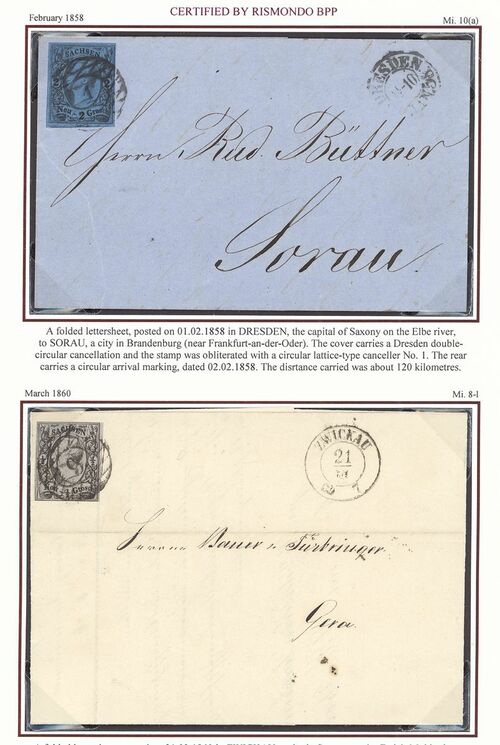 CERTIFIED BY RISMONDO BPP
February 1858
Mi. 10(a)
SACHSEN
Neu - 2 Grosch
DRESDEN
Herrn Rud. Büttner
Sorau.
A folded lettersheet, posted on 01.02.1858 in DRESDEN, the capital of Saxony on the Elbe river,
to SORAU, a city in Brandenburg (near Frankfurt-an-der-Oder). The cover carries a Dresden double-
circular cancellation and the stamp was obliterated with a circular lattice-type canceller No. 1. The rear
carries a circular arrival marking, dated 02.02.1858. The disrtance carried was about 120 kilometres.
March 1860
Mi. 8-I
SACHSEN
ZWICKAU
21
Herren Bauer & Fürbringer
Gera.